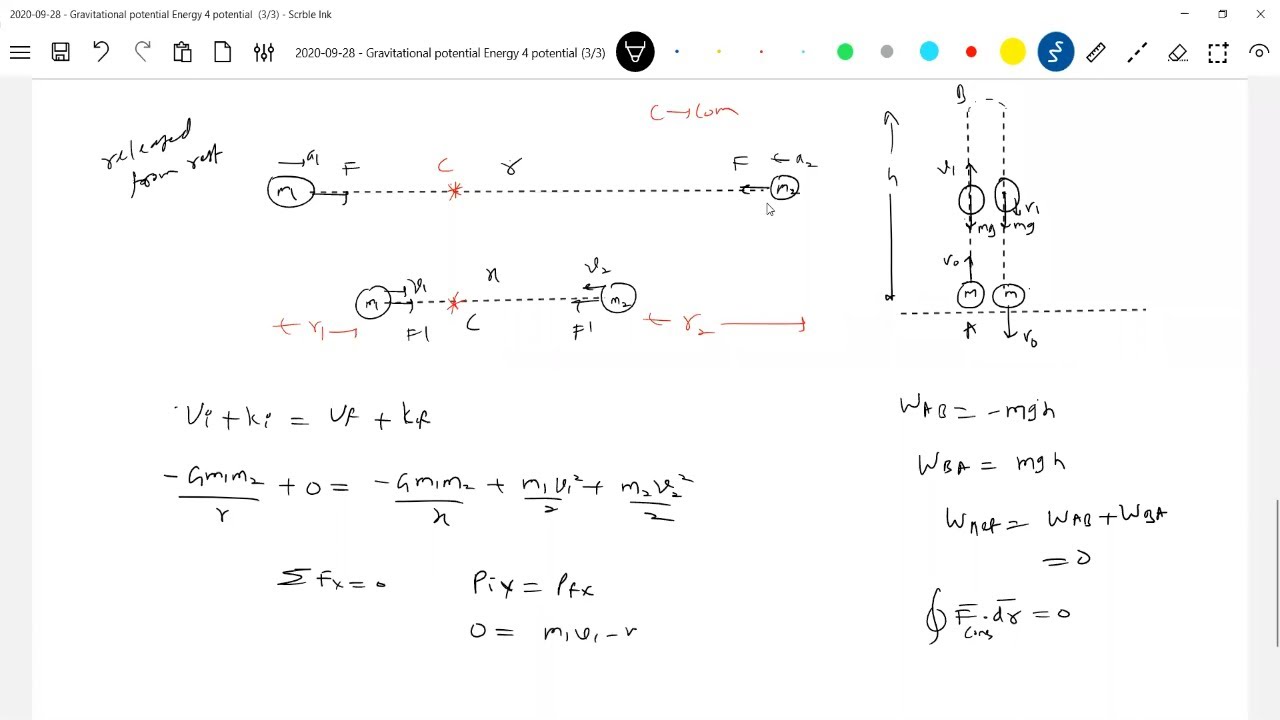 2020-09-28 - Gravitational potential Energy 4 potential (3/3) - Scrble Ink
2020-09-28 - Gravitational potential Energy 4 potential (3/3)
released
from rest
C → Com
a₁
F
C
r
F
a₂
m₁
m₂
v₁
x
v₂
m₁
m₂
r₁
F1
C
F1
r₂
B
h
v₁
v₁
mg
mg
v₀
m
m
A
v₀
Ui + ki = Uf + kf
-Gm₁m₂/r + 0 = -Gm₁m₂/x + m₁v₁²/2 + m₂v₂²/2
Σ Fx = 0
Pix = Pfx
0 = m₁v₁ - v
W_AB = -mgh
W_BA = mgh
W_net = W_AB + W_BA
= 0
∮ F̅cons · dr̅ = 0